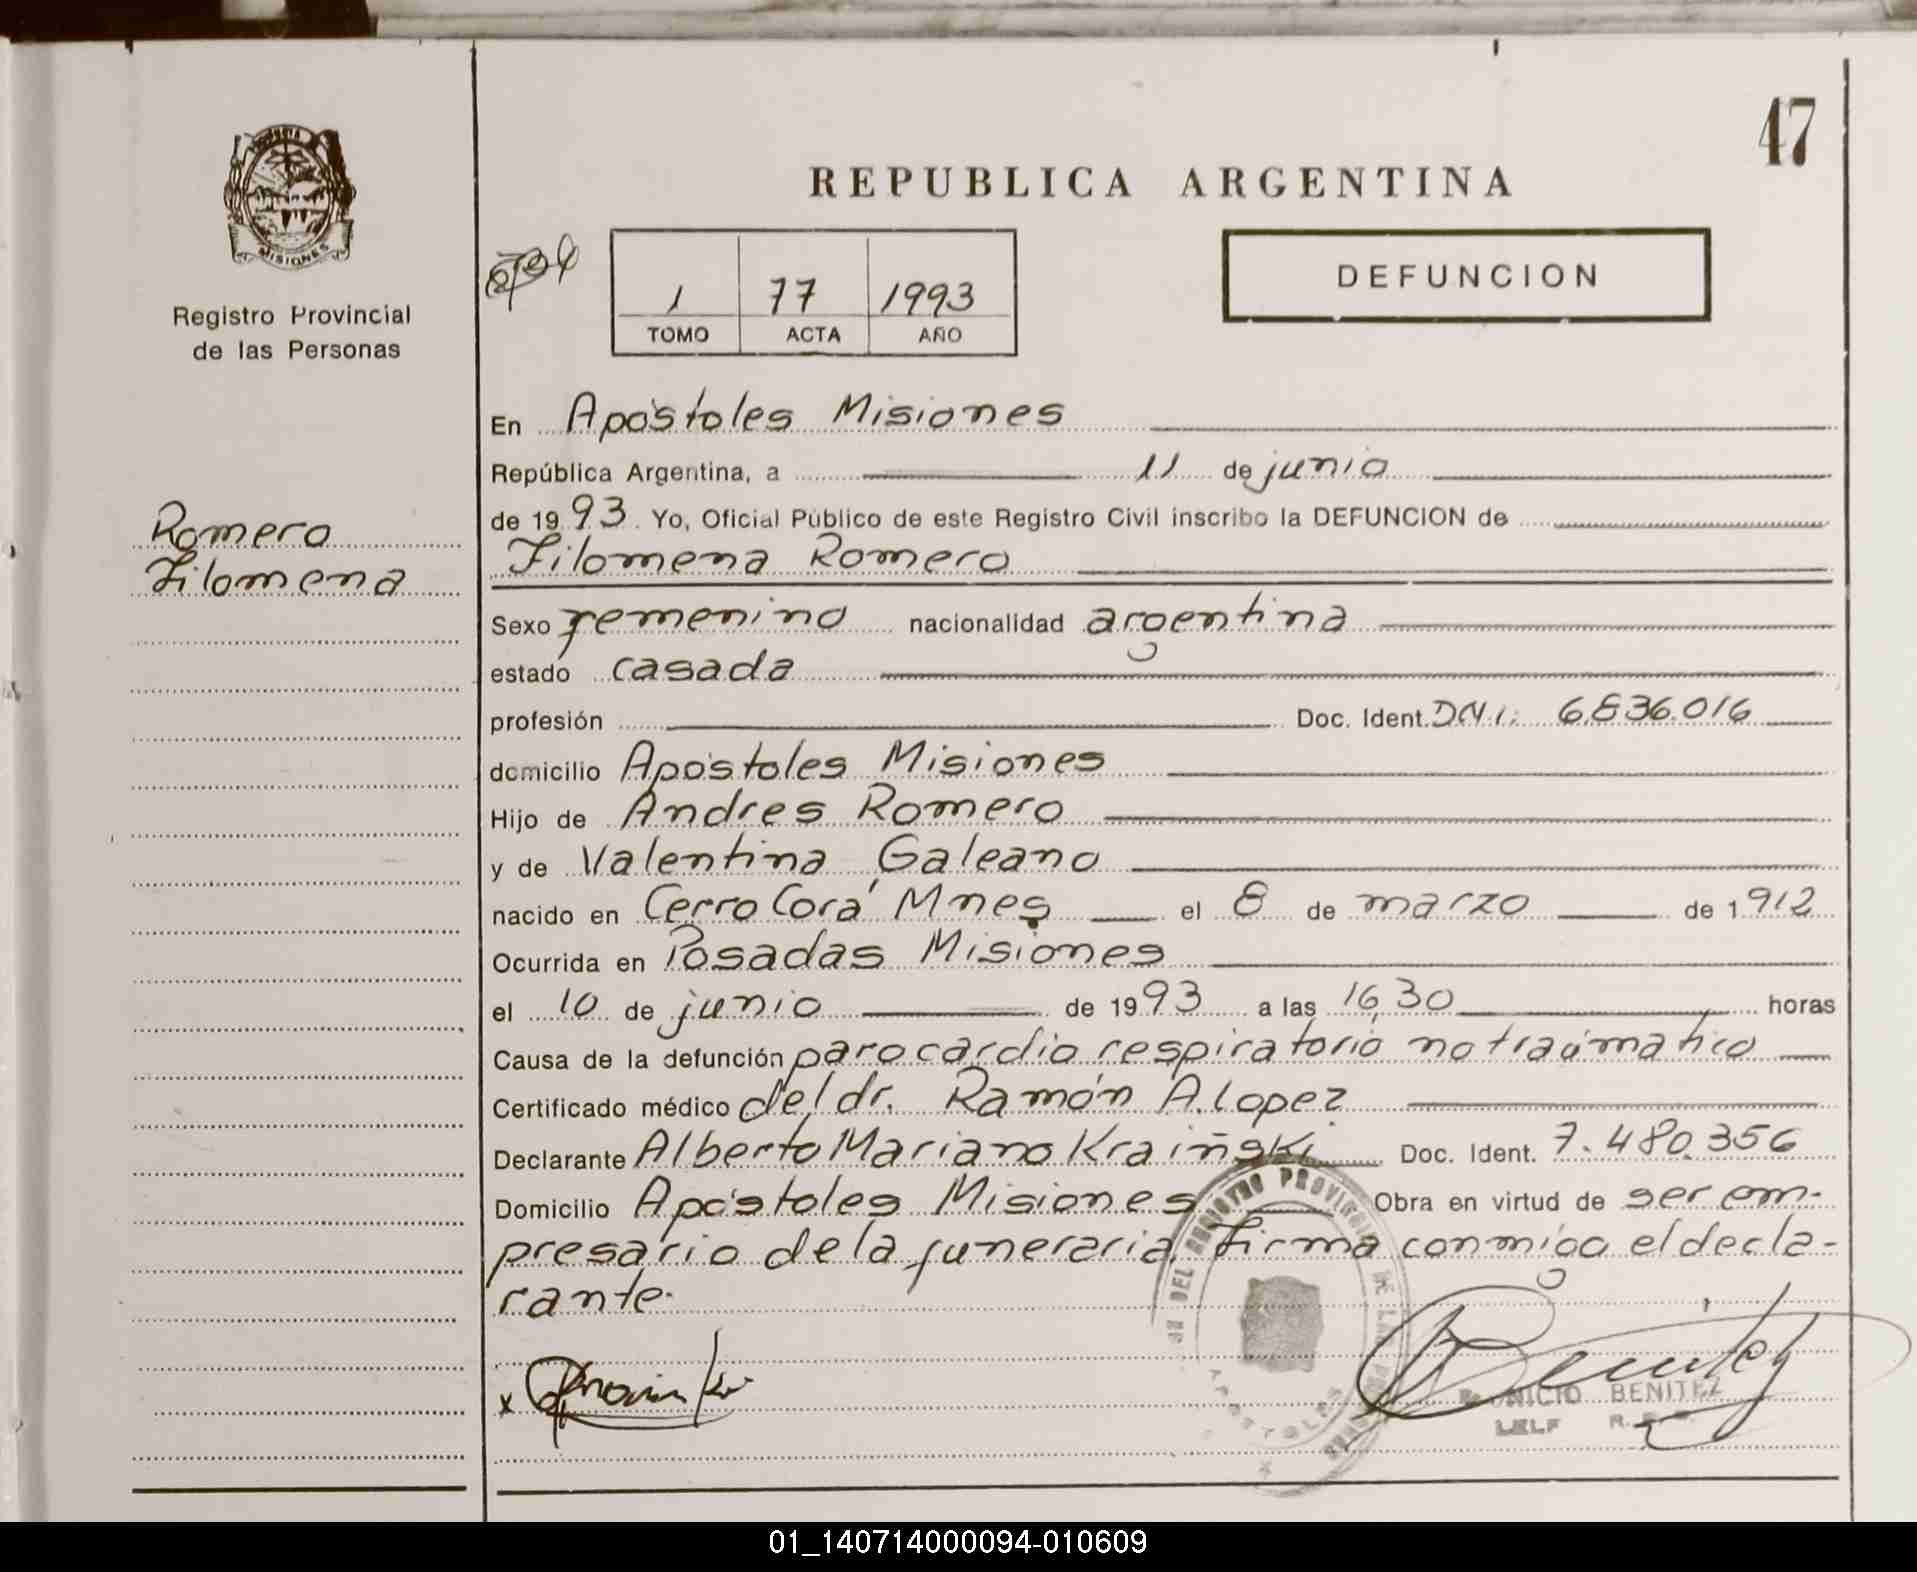 47
REPUBLICA ARGENTINA
MISIONES
Registro Provincial
de las Personas
1 77 1993
TOMO ACTA AÑO
DEFUNCION
Romero
Filomena
En Apóstoles Misiones
República Argentina, a 11 de junio
de 1993. Yo, Oficial Público de este Registro Civil inscribo la DEFUNCION de
Filomena Romero
Sexo femenino nacionalidad argentina
estado casada
profesión Doc. Ident. DNI: 6.836.016
domicilio Apóstoles Misiones
Hijo de Andres Romero
y de Valentina Galeano
nacido en Cerro Corá Mnes el 8 de marzo de 1912
Ocurrida en Posadas Misiones
el 10 de junio de 1993 a las 16,30 horas
Causa de la defunción paro cardio respiratorio no traúmatico
Certificado médico del dr. Ramón A. Lopez
Declarante Alberto Mariano Kraiñski Doc. Ident. 7.480.356
Domicilio Apóstoles Misiones Obra en virtud de ser em-
presario de la funeraria. Firma conmigo el decla-
rante.
DEL REGISTRO PROVINCIAL DE LAS
APOSTOLES
x
Benitez
BENITEZ
01_140714000094-010609